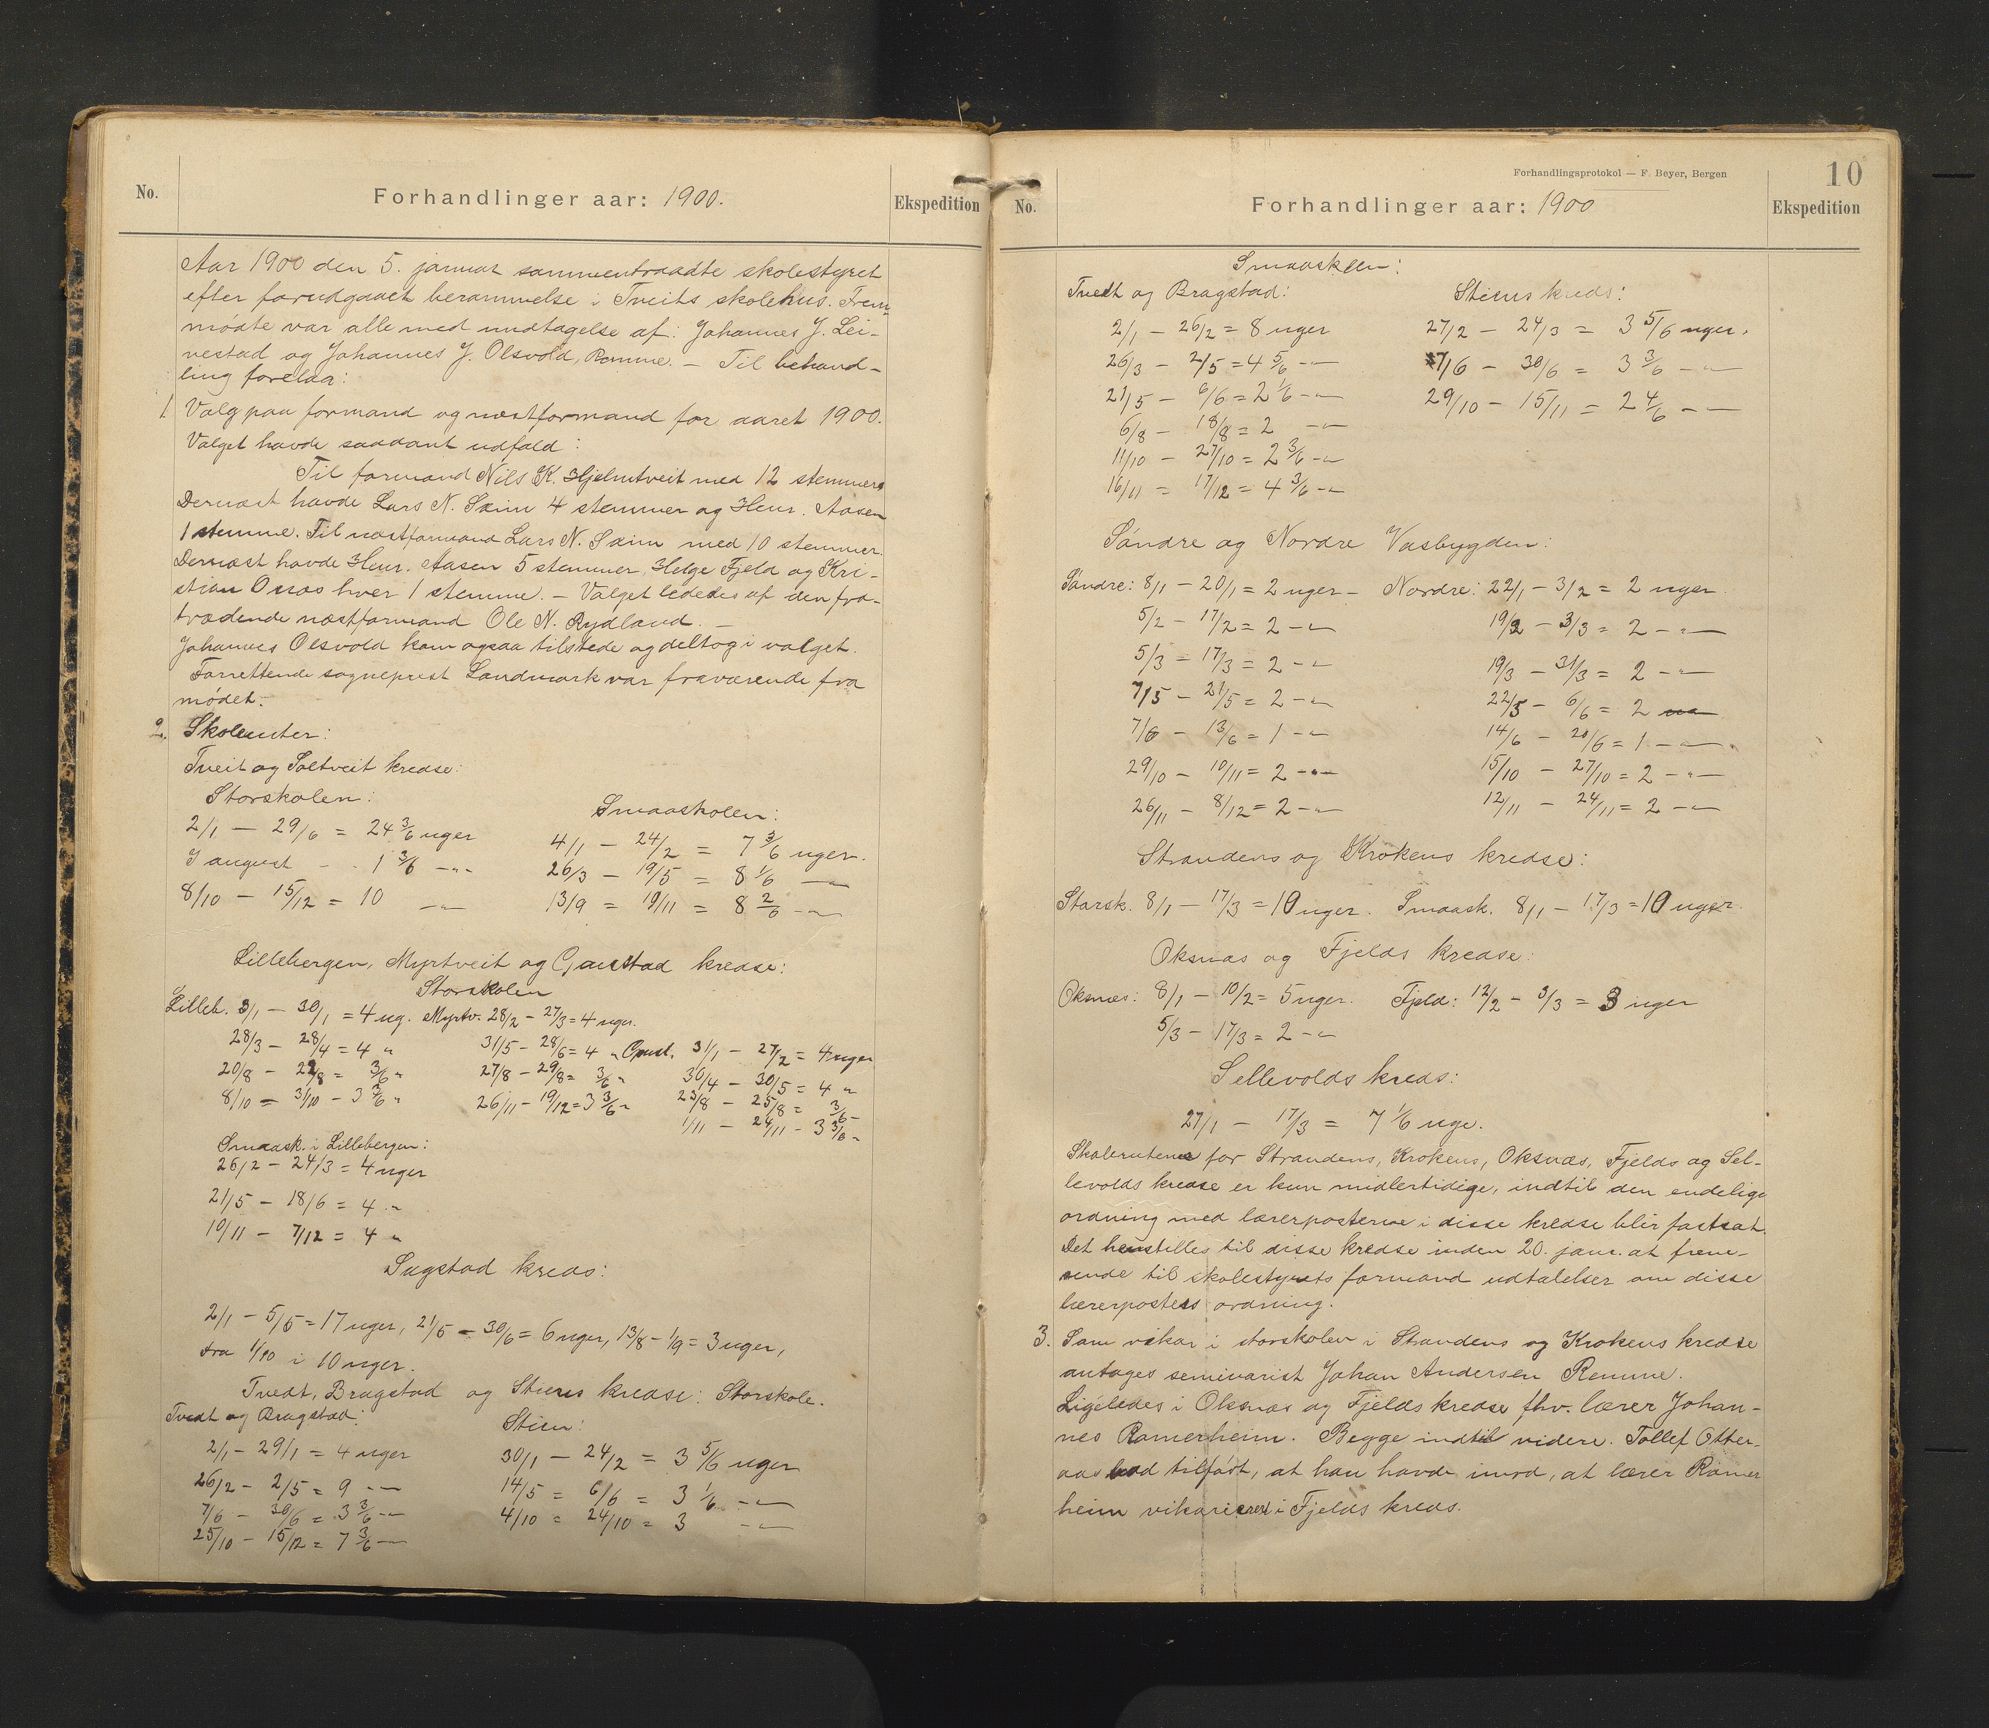 No.
Forhandlinger aar: 1900.
Ekspedition
Aar 1900 den 5. januar sammentraadte skolestyret
efter forudgaaet berammelse i Tveits skolehus. Frem-
mødte var alle med undtagelse af: Johannes J. Lei-
vestad og Johannes J. Olsvold, Romme. – Til behand-
ling forelaa:
1. Valg paa formand og næstformand for aaret 1900.
Valget havde saadant udfald:
Til formand Nils K. Hjelmtveit med 12 stemmer.
Dernæst havde Lars N. Sæim 4 stemmer og Henr. Aasen
1 stemme. Til næstformand Lars N. Sæim med 10 stemmer.
Dernæst havde Henr. Aasen 5 stemmer, Helge Fjeld og Kri-
stian Onæs hver 1 stemme. – Valget lededes af den fra-
trædende næstformand Ole N. Rydland. –
Johannes Olsvold kom ogsaa tilstede og deltog i valget.
Forrettende sogneprest Landmark var fraværende fra
mødet.
2. Skoleruter:
Tveit og Saltveit kredse:
Storskolen:
Smaaskolen:
2/1 – 29/6 = 24 3/6 uger
4/1 – 24/2 = 7 3/6 uger.
I august - - 1 3/6 – " –
26/3 – 19/5 = 8 1/6 – " –
8/10 – 15/12 = 10 – " –
13/9 = 10/11 = 8 2/6 – " –
Lillebergen, Myrtveit og Gaustad kredse:
Storskolen
Lilleb. 3/1 – 30/1 = 4 ug. Myrtv. 28/2 – 27/3 = 4 uger.
28/3 – 28/4 = 4 "   31/5 – 28/6 = 4 " Gaust. 31/1 – 27/2 = 4 uger
20/8 – 22/8 = 3/6 "   27/8 – 29/8 = 3/6 "   30/4 – 30/5 = 4 "
8/10 = 31/10 – 3 3/6 "   26/11 – 19/12 = 3 3/6 "   23/8 – 25/8 = 3/6 –
1/11 – 24/11 – 3 3/6 "
Smaask. i Lillebergen:
26/2 – 24/3 = 4 uger
21/5 – 18/6 = 4 "
10/11 – 7/12 = 4 "
Sugstad kreds:
2/1 – 5/5 = 17 uger, 21/5 – 30/6 = 6 uger, 13/8 – 1/9 = 3 uger,
fra 1/10 i 10 uger.
Tvedt, Bragstad og Stiens kredse: Storskole.
Tvedt og Bragstad:   Stien:
2/1 – 29/1 = 4 uger   30/1 – 24/2 = 3 5/6 uger
26/2 – 2/5 = 9 – " –   14/5 = 6/6 = 3 1/6 – " –
7/6 – 30/6 = 3 3/6 – " –   4/10 = 24/10 = 3 – " –
25/10 – 15/12 = 7 3/6 – " –
Forhandlingsprotokol — F. Beyer, Bergen
10
No.
Forhandlinger aar: 1900
Ekspedition
Smaaskolen:
Tvedt og Bragstad:   Stiens kreds:
2/1 – 26/2 = 8 uger   27/2 – 24/3 = 3 5/6 uger.
26/3 – 2/5 = 4 5/6 – " –   7/6 – 30/6 = 3 3/6 – " –
21/5 – 6/6 = 2 1/6 – " –   29/10 – 15/11 = 2 4/6 – " –
6/8 – 18/8 = 2 – " –
11/10 – 27/10 = 2 3/6 – " –
16/11 = 17/12 = 4 3/6 – " –
Søndre og Nordre Vasbygden:
Søndre: 8/1 – 20/1 = 2 uger – Nordre: 22/1 – 3/2 = 2 uger.
5/2 – 17/2 = 2 – " –   19/2 – 3/3 = 2 – " –
5/3 – 17/3 = 2 – " –   19/3 – 31/3 = 2 – " –
7/5 – 21/5 = 2 – " –   22/5 – 6/6 = 2 – " –
7/6 – 13/6 = 1 – " –   14/6 – 20/6 = 1 – " –
29/10 – 10/11 = 2 – " –   15/10 – 27/10 = 2 – " –
26/11 – 8/12 = 2 – " –   12/11 – 24/11 = 2 – " –
Strandens og Krokens kredse:
Storsk. 8/1 – 17/3 = 10 uger. Smaask. 8/1 – 17/3 = 10 uger.
Oksnæs og Fjelds kredse:
Oksnæs: 8/1 – 10/2 = 5 uger. Fjeld: 12/2 – 3/3 = 3 uger
5/3 – 17/3 = 2 – " –
Sellevolds kreds:
27/1 – 17/3 = 7 1/6 uge.
Skoleruterne for Strandens, Krokens, Oksnæs, Fjelds og Sel-
levolds kredse er kun midlertidige, indtil den endelige
ordning med lærerposterne i disse kredse blir fastsat.
Det henstilles til disse kredse inden 20. janr. at frem-
sende til skolestyrets formand udtalelser om disse
lærerposters ordning.
3. Som vikar i storskolen i Strandens og Krokens kredse
antages seminarist Johan Andersen Romme.
Ligeledes i Oksnæs og Fjelds kredse fhv. lærer Johan-
nes Romerheim. Begge indtil videre. Tollef Otter-
aas bad tilført, at han havde imod, at lærer Romer
heim vikarierer i Fjelds kreds.